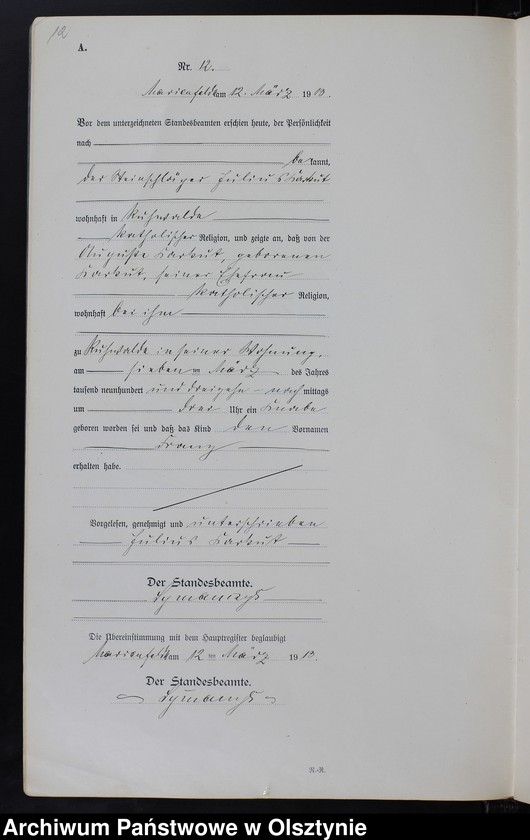 12
A.
Nr. 12.
Marienfelde am 12. März 1913.
Vor dem unterzeichneten Standesbeamten erschien heute, der Persönlichkeit
nach
be kannt,
der Steinschläger Julius Karkut
wohnhaft in Ruhwalde
katholischer Religion, und zeigte an, daß von der
Auguste Karkut, geborenen
Karkut, seiner Ehefrau
katholischer Religion,
wohnhaft bei ihm
zu Ruhwalde in seiner Wohnung,
am sieben ten März des Jahres
tausend neunhundert und dreizehn nach mittags
um drei Uhr ein Knabe
geboren worden sei und daß das Kind den Vornamen
Franz
erhalten habe.
Vorgelesen, genehmigt und unterschrieben
Julius Karkut
Der Standesbeamte.
Die Übereinstimmung mit dem Hauptregister beglaubigt
Marienfelde am 12 ten März 1913.
Der Standesbeamte.
R.-R.
Archiwum Państwowe w Olsztynie